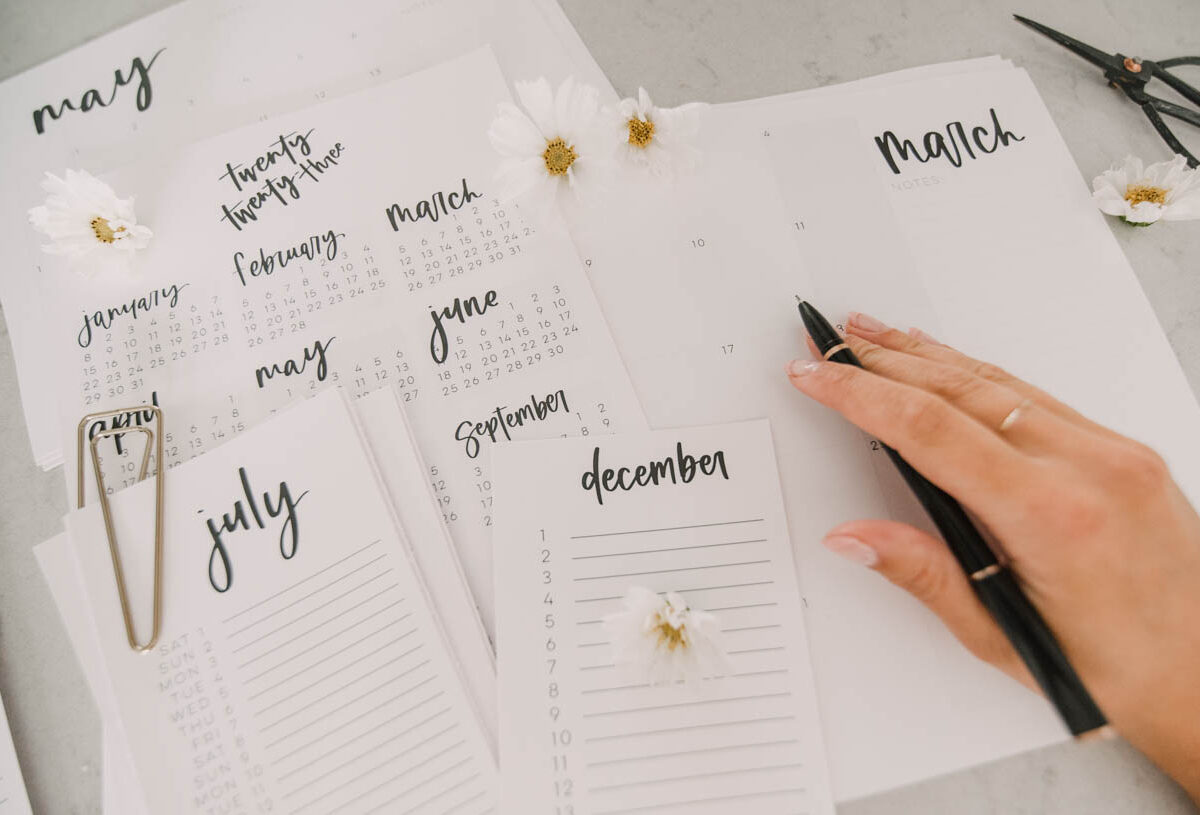 may
twenty
twenty-three
january
2 3 4 5 6 7
8 9 10 11 12 13 14
15 16 17 18 19 20 21
22 23 24 25 26 27 28
29 30 31
february
1 2 3 4
5 6 7 8 9 10 11
12 13 14 15 16 17 18
19 20 21 22 23 24 25
26 27 28
march
1 2 3
5 6 7 8 9 10
12 13 14 15 16 17
19 20 21 22 23 24
26 27 28 29 30 31
april
1
may
4 5 6
june
1 2 3
5 6 7 8 9 10
12 13 14 15 16 17
18 19 20 21 22 23 24
25 26 27 28 29 30
september
1 2
8 9
march
NOTES:
4
11
10
9
17
july
SAT 1
SUN 2
MON 3
TUE 4
WED 5
THU 6
FRI 7
SAT 8
SUN 9
MON 10
TUE 11
12
december
1
2
3
4
5
6
7
8
9
10
11
12
13